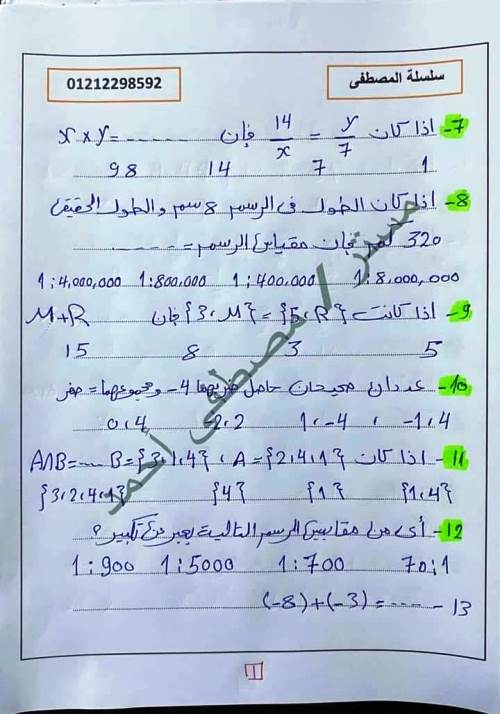 سلسلة المصطفى
01212298592
7- اذا كان y/7 = 14/x فإن x × y = -----
1 7 14 98
8- اذا كان الطول فى الرسم 8 سم والطول الحقيقى
320 كم فإن مقياس الرسم = -----
1:8,000,000 1:400,000 1:800,000 1:4,000,000
9- اذا كانت {5، R} = {3، M} فإن M+R
5 3 8 15
10- عددان صحيحان حاصل ضربهما 4- ومجموعهما = صفر
-1،4 ، 1،-4 -2،2 0،4
11- اذا كان A={2،4،1} ، B={3،1،4} A∩B=----
{1،4} {1} {4} {3،2،4،1}
12- أى من مقاييس الرسم التالية يعبر عن تكبير ؟
70:1 1:700 1:5000 1:900
13- (-8)+(-3)= -----
مستر / مصطفى أحمد
1